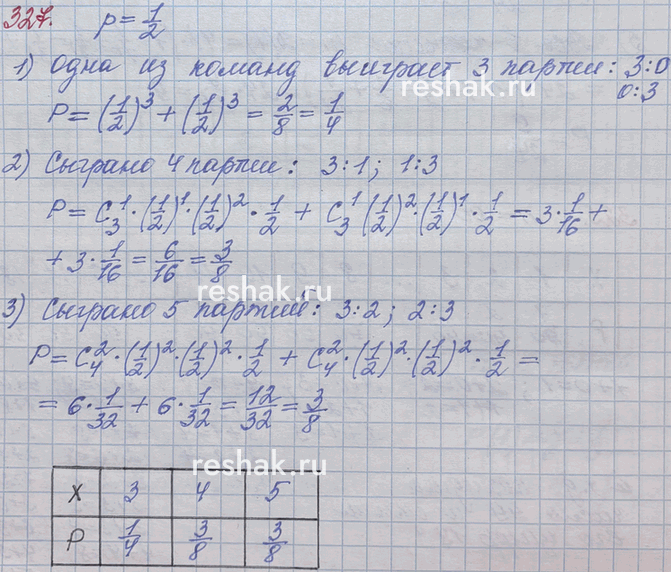 327. p = 1/2
1) Одна из команд выиграет 3 партии: 3:0
0:3
P = (1/2)^3 + (1/2)^3 = 2/8 = 1/4
reshak.ru
2) Сыграно 4 партии: 3:1; 1:3
P = C_3^1 · (1/2)^1 · (1/2)^2 · 1/2 + C_3^1 (1/2)^2 · (1/2)^1 · 1/2 = 3 · 1/16 +
+ 3 · 1/16 = 6/16 = 3/8
reshak.ru
3) Сыграно 5 партий: 3:2; 2:3
P = C_4^2 · (1/2)^2 · (1/2)^2 · 1/2 + C_4^2 · (1/2)^2 · (1/2)^2 · 1/2 =
= 6 · 1/32 + 6 · 1/32 = 12/32 = 3/8
reshak.ru
X 3 4 5
P 1/4 3/8 3/8